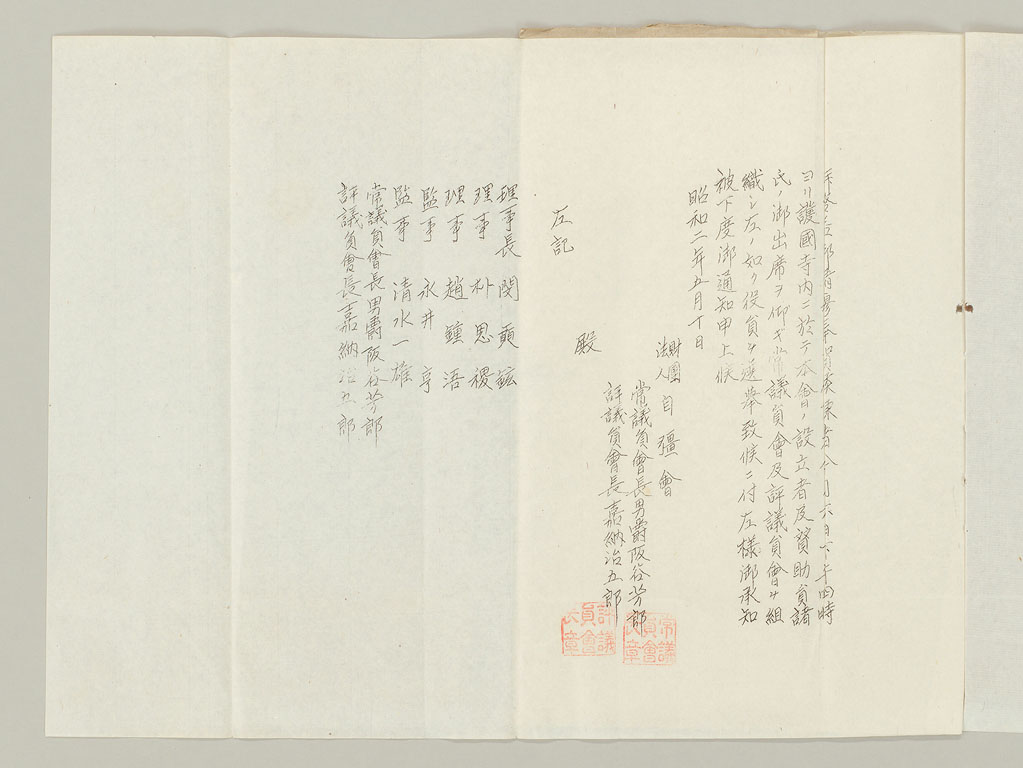 六日下午四時
ヨリ護國寺內ニ於テ本會ノ設立者及賛助員諸
氏ノ御出席ヲ仰ギ常議員會及評議員會ヲ組
織シ左ノ如ク役員ヲ選擧致候ニ付左樣御承知
被下度御通知申上候
昭和二年五月十日
財團法人 自彊會
常議員會長男爵阪谷芳郎
評議員會長嘉納治五郎
殿
左記
理事長 閔 鉉
理事 朴思稷
理事 趙鍾浯
監事 永井亨
監事 清水一雄
常議員會長男爵阪谷芳郎
評議員會長嘉納治五郎
常議員會長章
評議員會長章